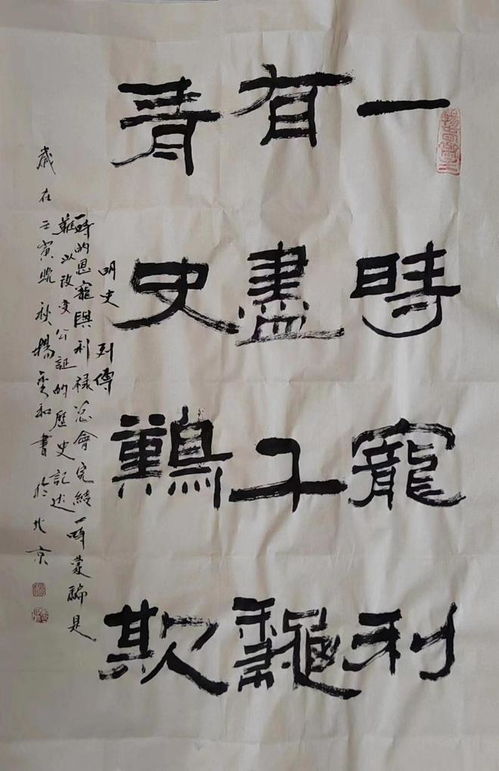 一時寵利
有盡千龝
青史鷬欺
明史列傳
一時的恩寵與利禄总會完結一時蒙騙是
難以改变公的歷史記述
歲在壬寅秋楊和書於北京